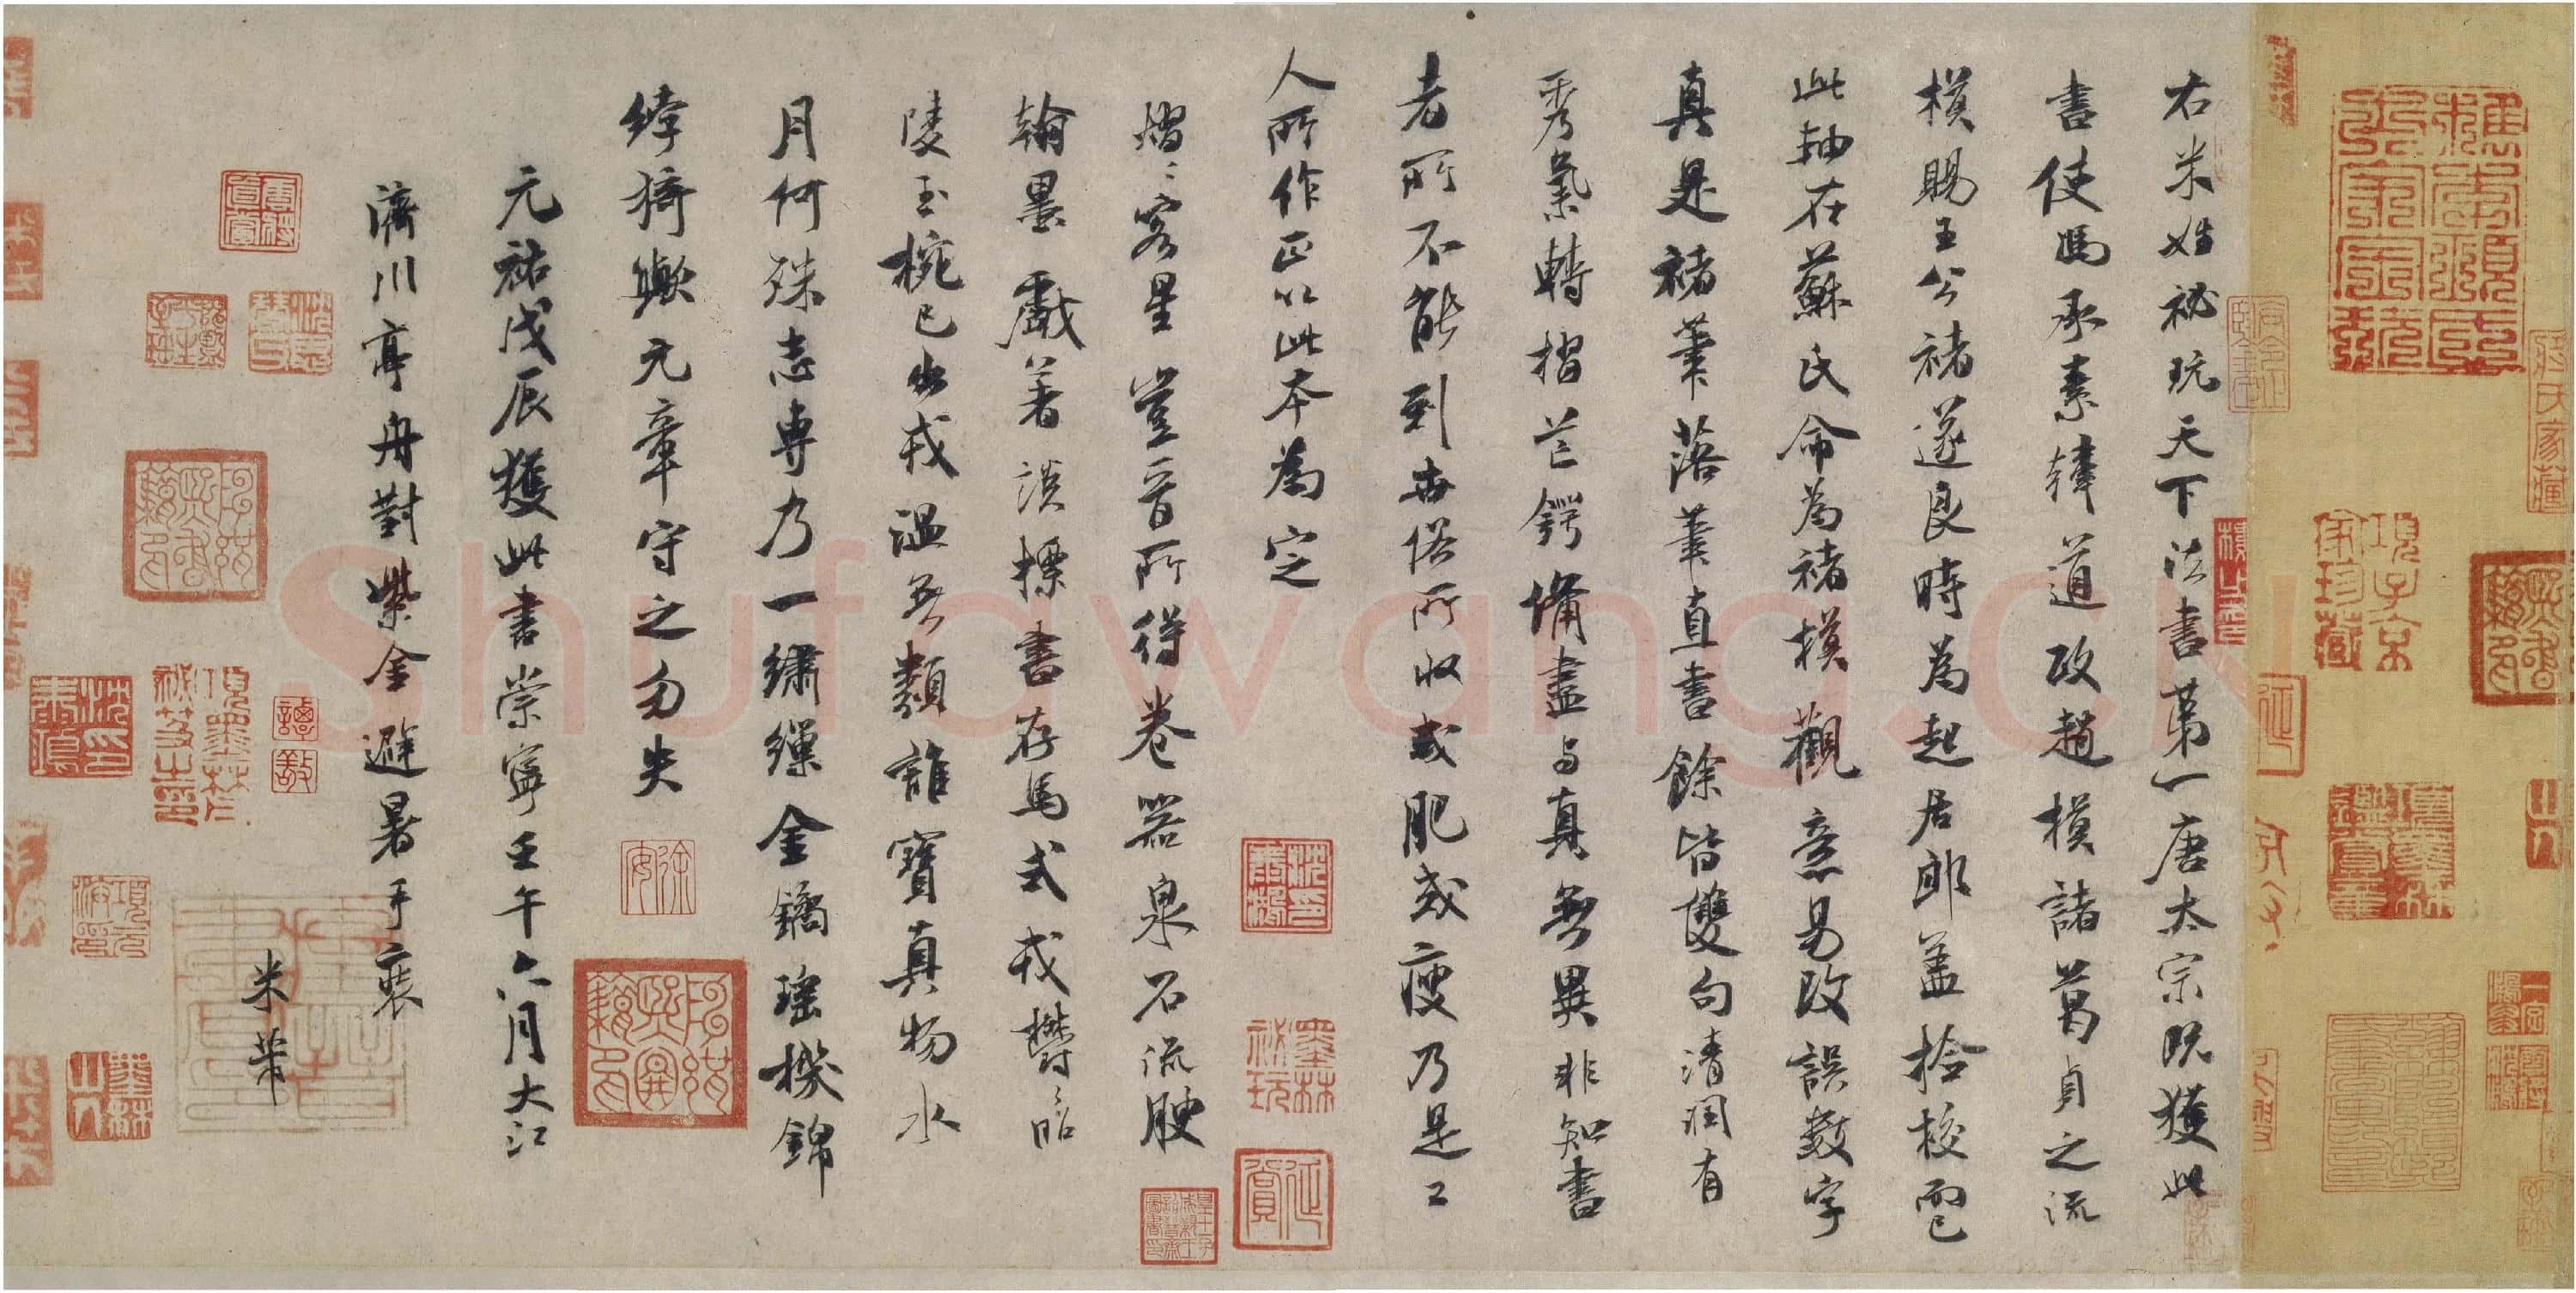 右米姓祕玩天下法書第一唐太宗既獲此
書使馮承素韓道政趙模諸葛貞之流
模賜王公褚遂良時為起居郎蓋撿校而已
此軸在蘇氏命為褚模觀意易改誤數字
真是褚筆落筆直書餘皆雙勾清潤有
秀氣轉摺芒鍔備盡与真無異非知書
者所不能到世俗所收或肥或瘦乃是工
人所作正以此本為定
熠〻客星豈晉所得卷器泉石流腴
翰墨戲著談標書存馬式戎欝〻昭
陵玉椀已出戎溫無類誰寶真物水
月何殊志專乃一繡繅金鐍瑤機錦
綍猗歟元章守之勿失
元祐戊辰獲此書崇寧壬午六月大江
濟川亭舟對紫金避暑手裝
米芾
項子京家珍藏
蔣氏家藏
墨林山人
墨林祕玩
Shufawang.CN